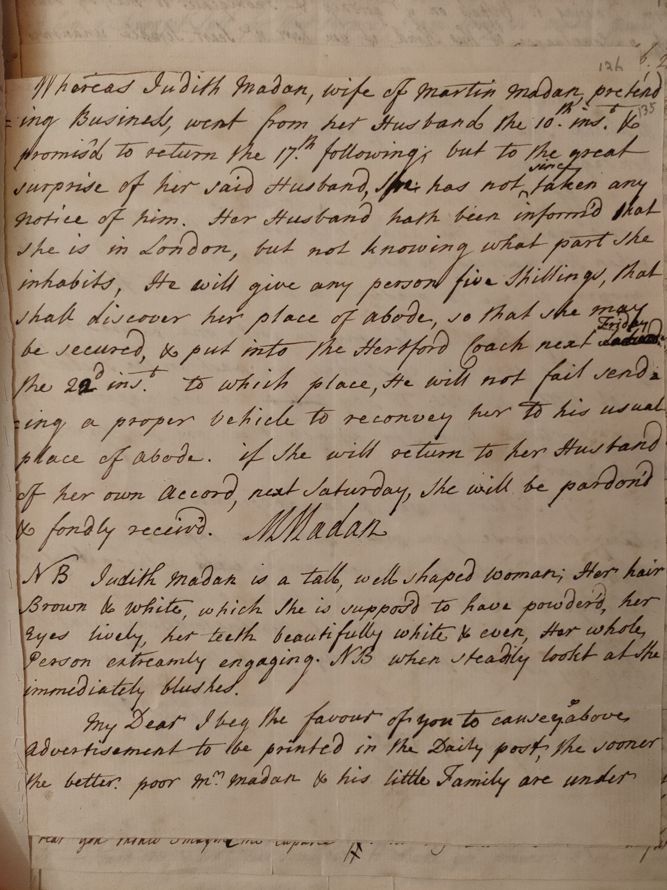 126
135
Whereas Judith Madan, wife of Martin Madan, pretend
=ing Business, went from her Husband the 10.th ins.t &
promis'd to return the 17.th following; but to the great
surprise of her said Husband, she has not since taken any
notice of him. Her Husband hath been inform'd that
she is in London, but not knowing what part she
inhabits, He will give any person five Shillings, that
shall discover her place of abode, so that she may
be secured, & put into the Hertford Coach next Friday
the 22d ins.t to which place, He will not fail send=
=ing a proper Vehicle to reconvey her to his usual
place of abode. if she will return to her Husband
of her own accord, next Saturday, she will be pardon'd
& fondly receiv'd. MMadan
NB Judith Madan is a tall, well shaped woman; Her hair
Brown & white, which she is suppos'd to have powder'd, her
Eyes lively, her teeth beautifully white & even, Her whole
Person extreamly engaging. NB when steadily lookt at she
immediately blushes.
My Dear I beg the favour of you to cause ye above
Advertisement to be printed in the Daily post, the sooner
the better. poor Mr. Madan & his little Family are under